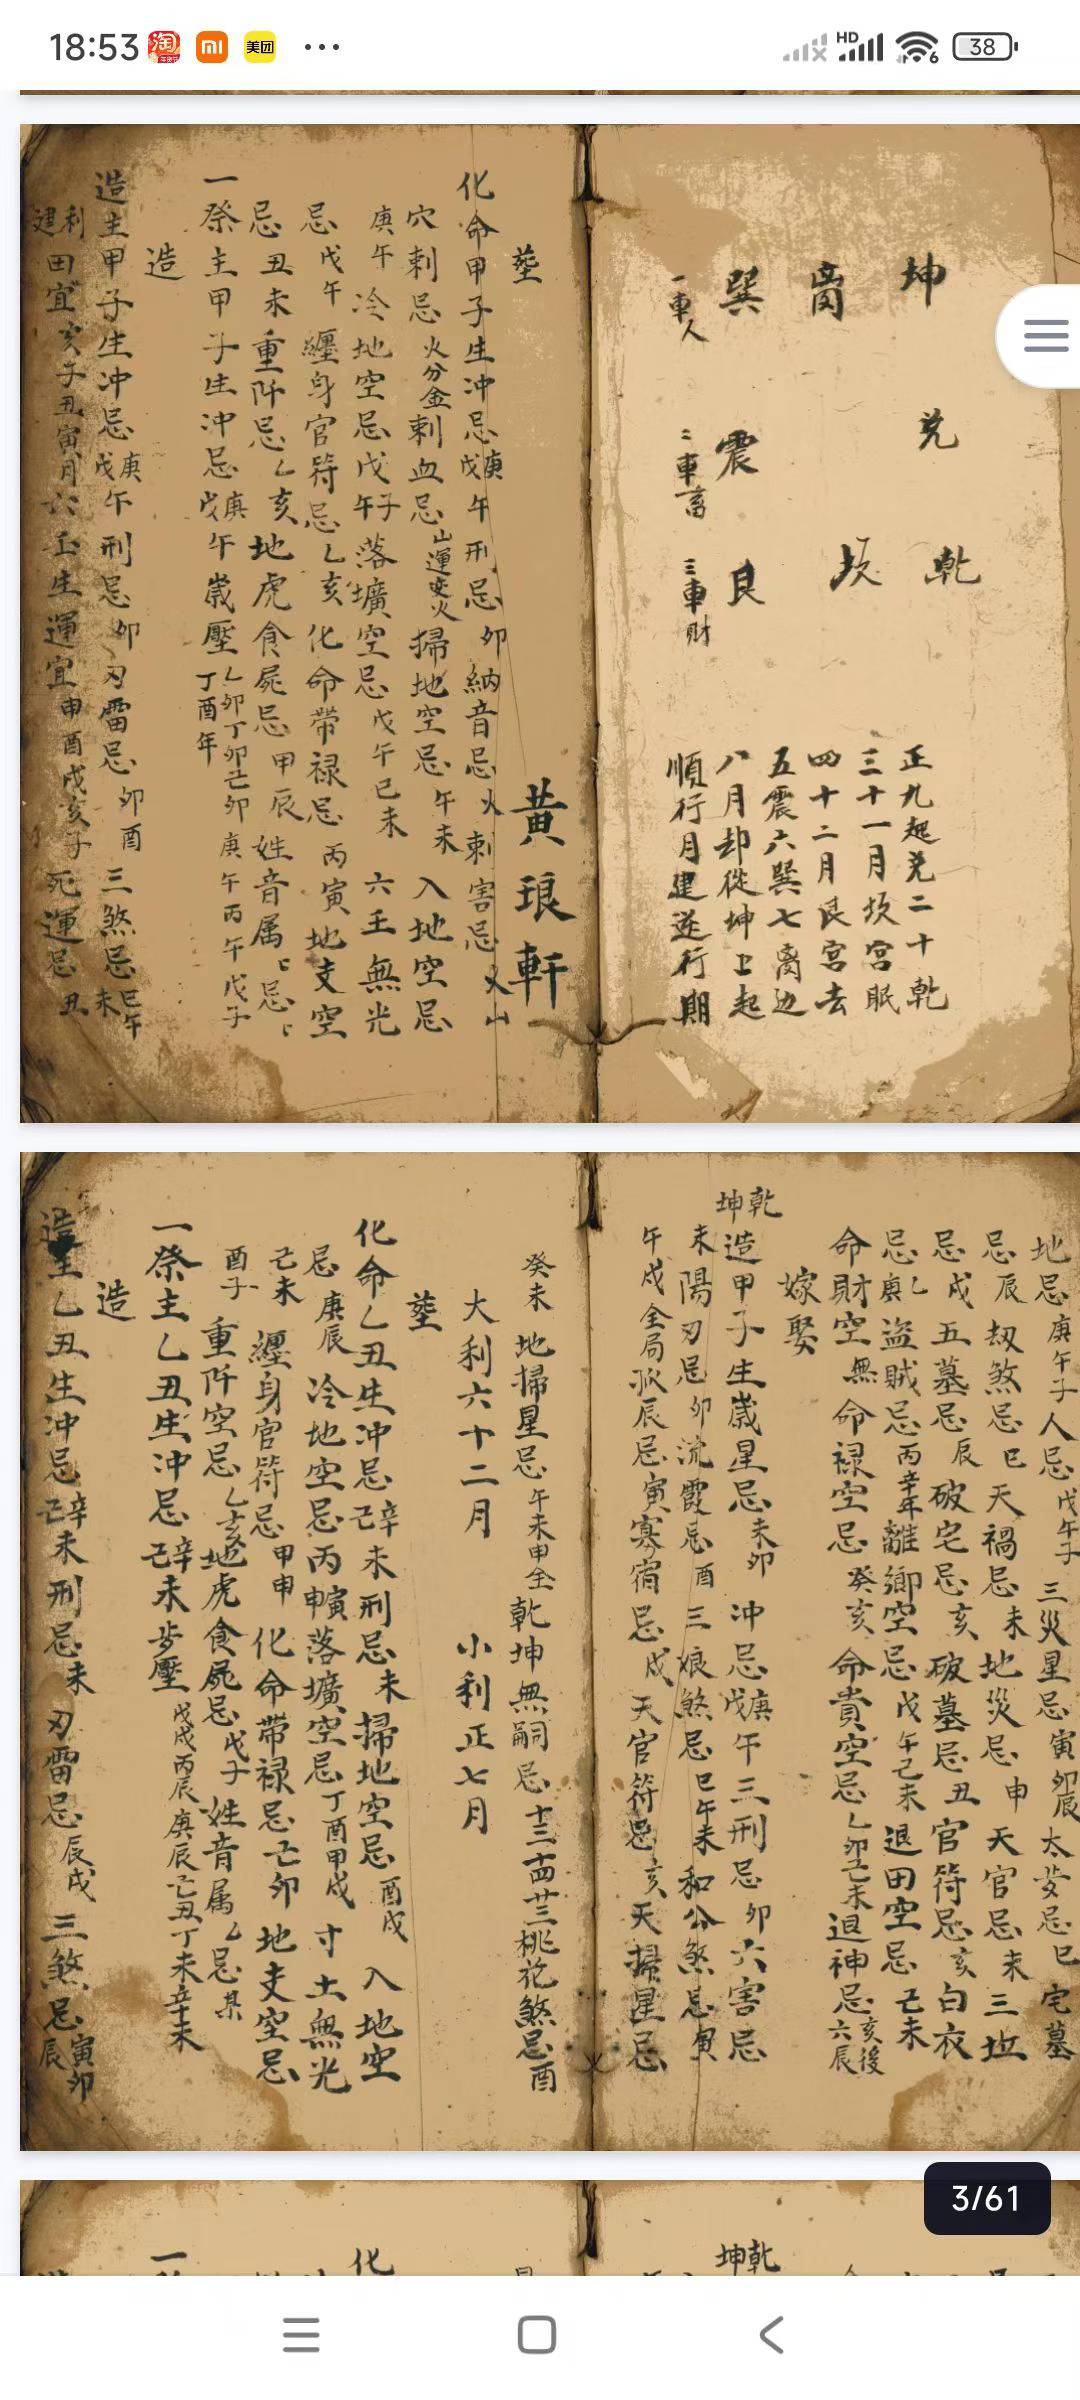 18:53
淘
mi
美团
...
HD
6
38
坤
离
巽
一車人
兌
震
二車畜
乾
坎
艮
三車財
正九起兌二十乾
三十一月坎宫眠
四十二月艮宫去
五震六巽七离边
八月却從坤上起
順行月建逆行期
黄琅軒
塟
化命甲子生冲忌庚戊午刑忌卯納音忌火刺害忌火山
穴刺忌火分金刺血忌山運变火掃地空忌午未入地空忌
庚午冷地空忌戊午子落壙空忌戊午己未六壬無光
忌戊午纏身官符忌乙亥化命带禄忌丙寅地支空
忌丑未重阡忌乙亥地虎食屍忌甲辰姓音属忌
一祭主甲子生冲忌庚戊午歲壓乙卯丁卯己卯庚午丙午戊子丁酉年
造
造主甲子生冲忌庚戊午刑忌卯刃雷忌卯酉三煞忌巳午未
利建田宜亥子丑寅月六壬生運宜申酉戌亥子死運忌丑
地忌庚午子人忌戊午子三災星忌寅卯辰太岁忌巳宅墓
忌辰劫煞忌巳天禍忌未地災忌申天官忌未三坵
忌戌五墓忌辰破宅忌亥破墓忌丑官符忌亥白衣
忌庚乙盗賊忌丙辛年離鄉空忌戊午己未退田空忌己未
命財空無命禄空忌癸亥命貴空忌乙卯己未退神忌亥後六辰
嫁娶
乾坤造甲子生歲星忌未卯冲忌庚戊午三刑忌卯六害忌
未陽刃忌卯流霞忌酉三娘煞忌巳午未和公煞忌寅
午戌全局孤辰忌寅寡宿忌戌天官符忌亥天掃星忌
癸未地掃星忌午未申全乾坤無嗣忌十三十四廿三桃花煞忌酉
大利六十二月小利正七月
塟
化命乙丑生冲忌辛己未刑忌未掃地空忌酉戌入地空
忌庚辰冷地空忌丙申寅落壙空忌丁酉甲戌寸土無光
己未纏身官符忌甲申化命带禄忌己卯地支空忌
酉子重阡空忌乙亥地虎食屍忌戊子姓音属乙忌某
一祭主乙丑生冲忌辛己未步壓戊戌丙辰庚辰己丑丁未辛未
造
造主乙丑生冲忌辛己未刑忌未刃雷忌辰戌三煞忌寅卯辰
3/61
乾坤
化
一